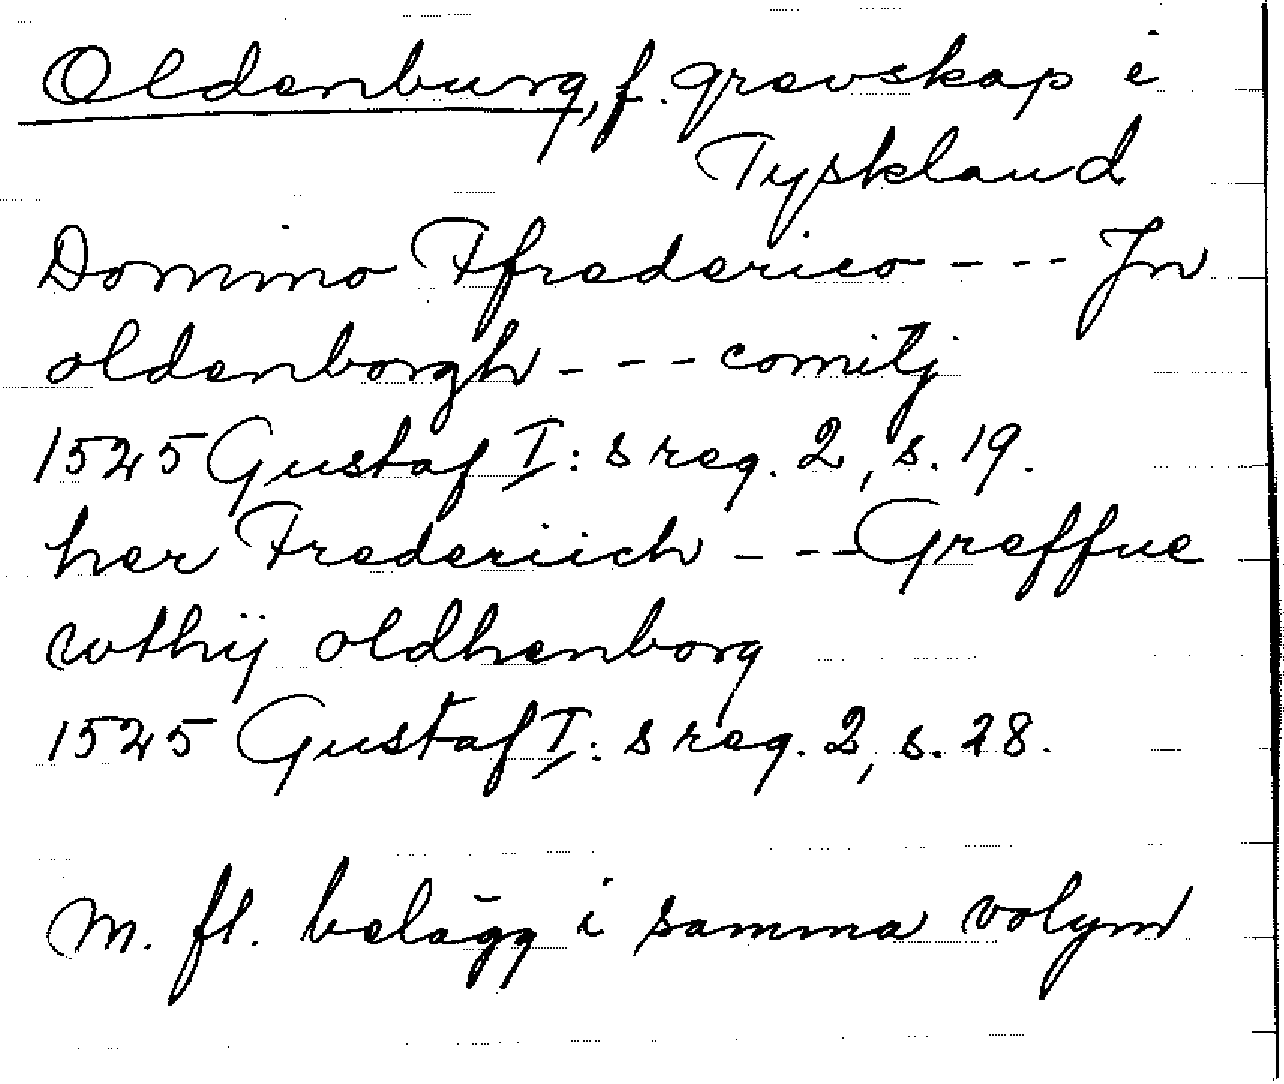 Oldenburg, f. grevskap i
Tyskland
Domino Ffrederico - - - Jn
oldenborgh - - - comitj
1525 Gustaf I: s reg. 2, s. 19.
her Frederiich - - - Greffue
wthij oldhenborg
1525 Gustaf I: s reg. 2, s. 28.
m. fl. belägg i samma volym